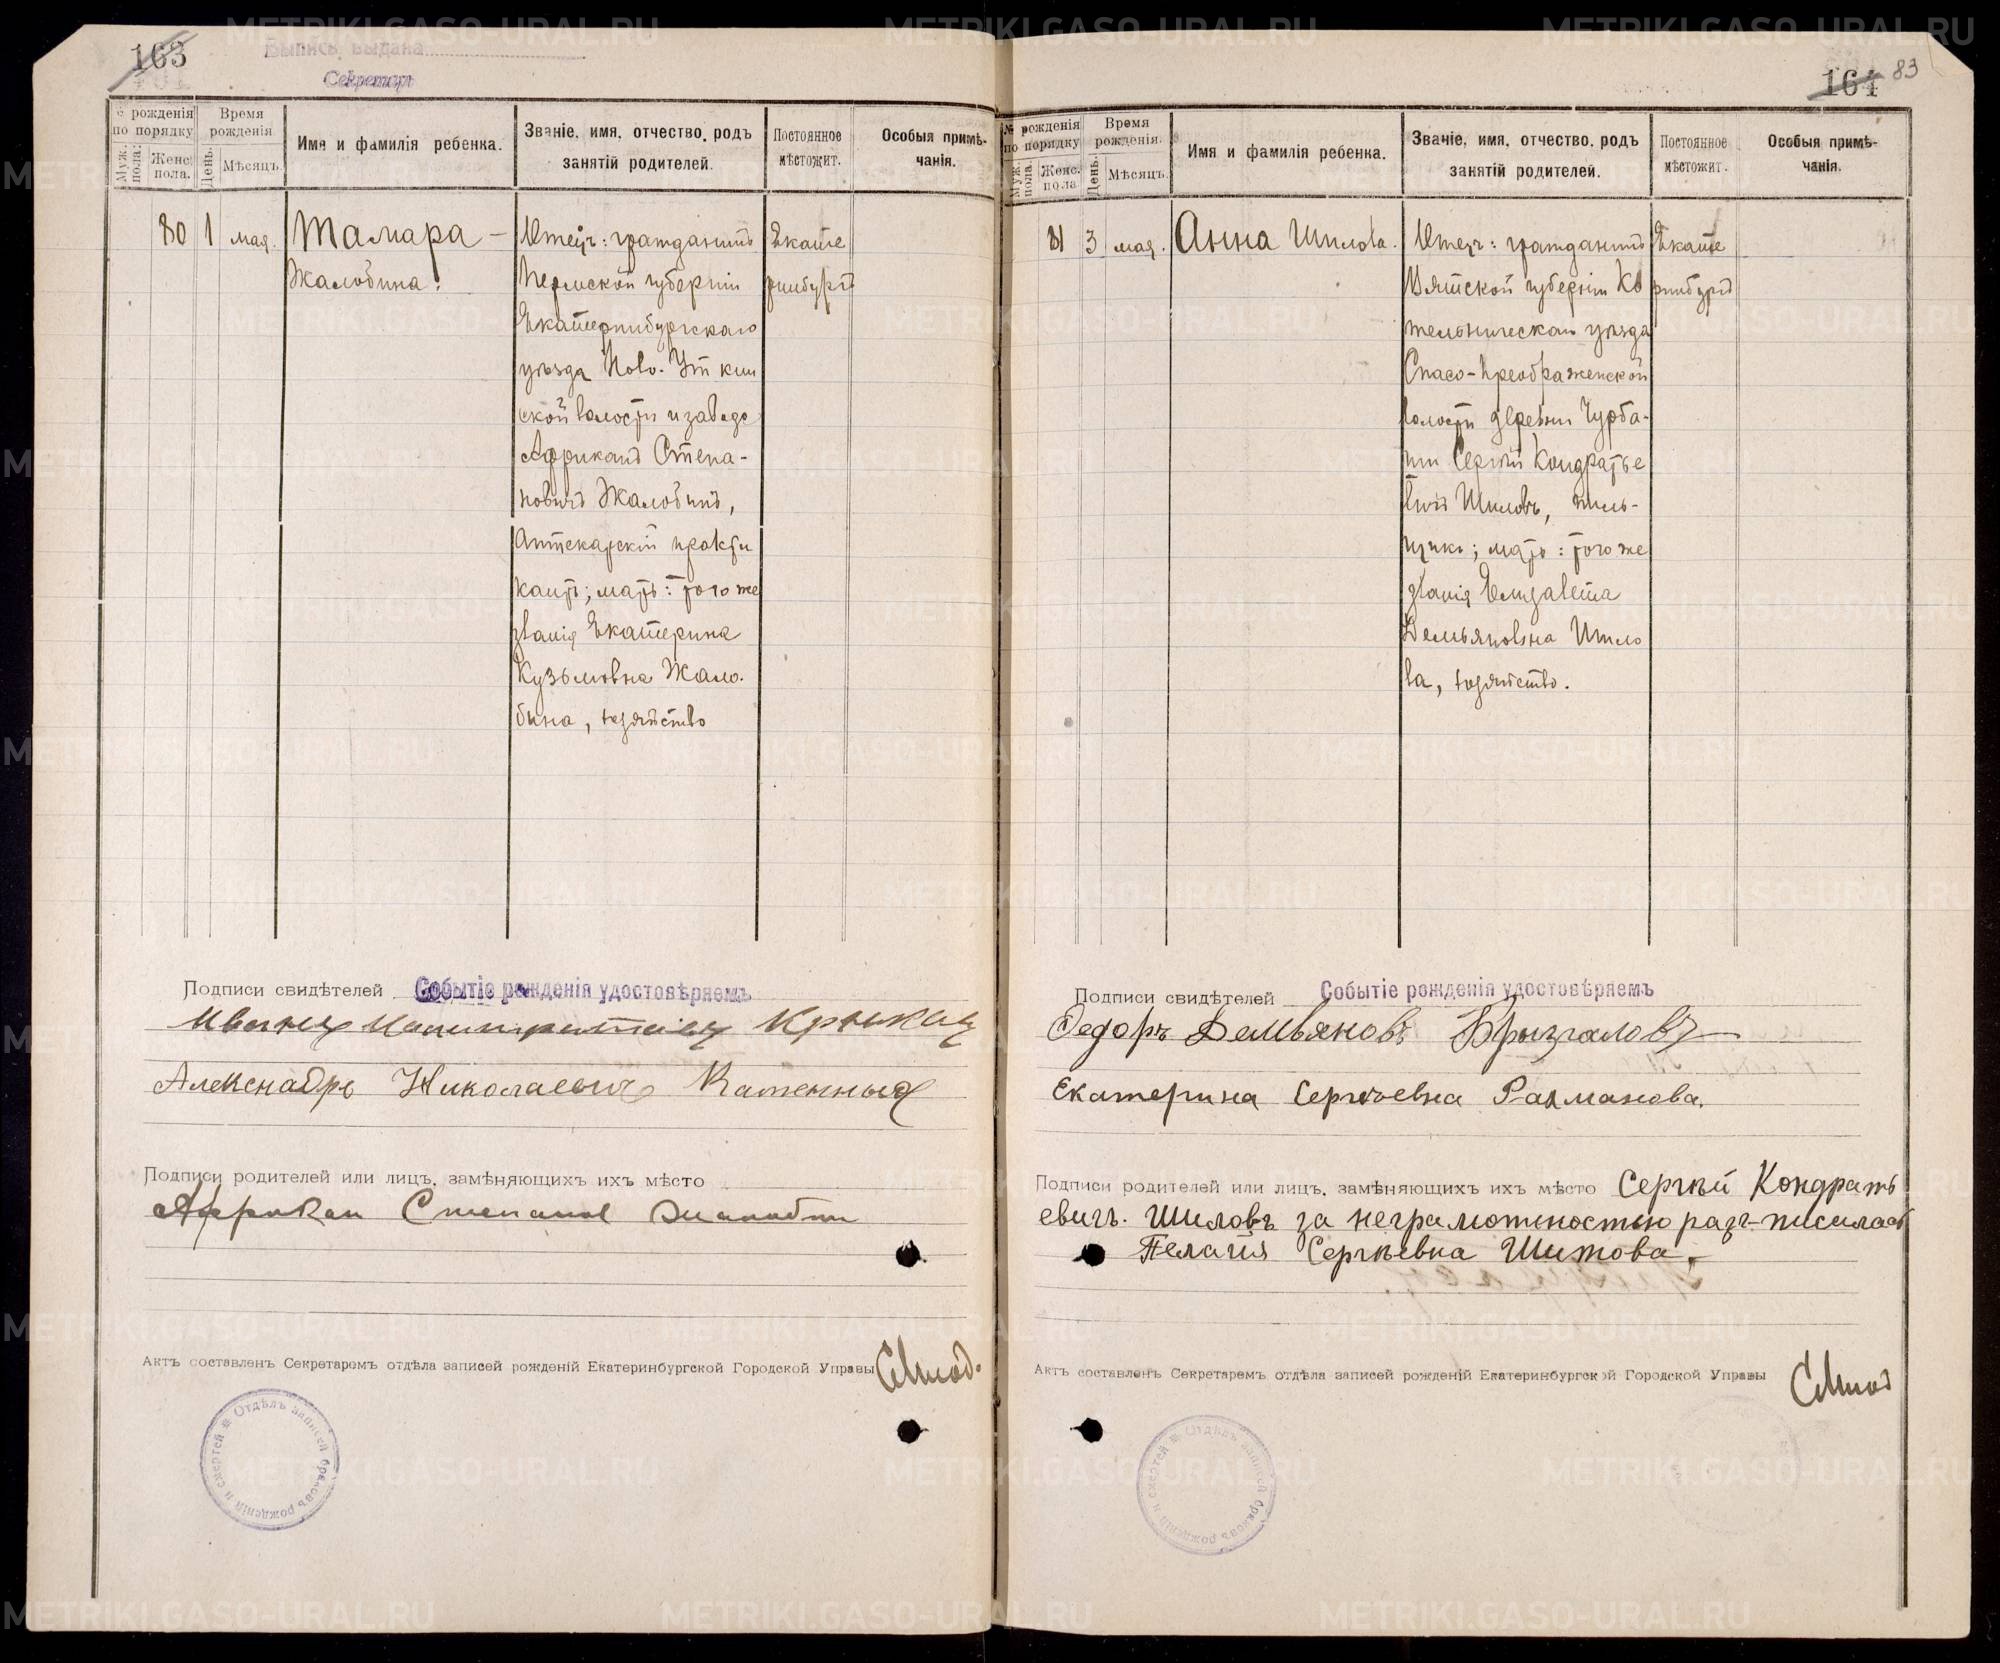 163
Выпись выдана
Секретарь
№ рожденія по порядку
Муж. пола:
Женс. пола.
Время рожденія
День.
Мѣсяцъ
Имя и фамилія ребенка.
Званіе, имя, отчество, родъ
занятій родителей.
Постоянное
мѣстожит.
Особыя примѣ-
чанія.
80 1 мая.
Тамара -
Жалобина.
Отецъ: гражданинъ
Пермской губерніи
Екатеринбургскаго
уѣзда Ново-Уткин
ской волости и завода
Африканъ Степа-
новичъ Жалобинъ,
Аптекарскій практи
кантъ; мать: того же
званія Екатерина
Кузьмовна Жало-
бина, хозяйство
Екате
ринбургъ
Подписи свидѣтелей
Событіе рожденія удостовѣряемъ
Алекснадръ Николаевичъ Каменныхъ
Подписи родителей или лицъ, замѣняющихъ ихъ мѣсто
Африкан Степанов Жалобин
Актъ составленъ Секретаремъ отдѣла записей рожденій Екатеринбургской Городской Управы
Отдѣлъ записей браковъ рожденій и смертей
164 83
№ рожденія
по порядку
Муж. пола
Женс. пола
Время
рожденія.
День.
Мѣсяцъ.
Имя и фамилія ребенка.
Званіе, имя, отчество, родъ
занятій родителей.
Постоянное
мѣстожит.
Особыя примѣ-
чанія.
81 3 мая.
Анна Шилова.
Отецъ: гражданинъ
Вятской губерніи Ко
тельническаго уѣзда
Спасо-Преображенской
волости деревни Чурба-
ни Сергѣй Кондратье
вичъ Шиловъ, пиль-
щикъ; мать: того же
званія Елизавета
Демьяновна Шило
ва, хозяйство.
Екате
ринбургъ
Подписи свидѣтелей
Событіе рожденія удостовѣряемъ
Федоръ Демьяновъ Брызгаловъ
Екатерина Сергѣевна Рахманова.
Подписи родителей или лицъ, замѣняющихъ ихъ мѣсто Сергѣй Кондрать
евичъ. Шиловъ за неграмотностью
Пелагія Сергѣевна
Актъ составленъ Секретаремъ отдѣла записей рожденій Екатеринбургской Городской Управы
Отдѣлъ записей браковъ рожденій и смертей
METRIKI.GASO-URAL.RU